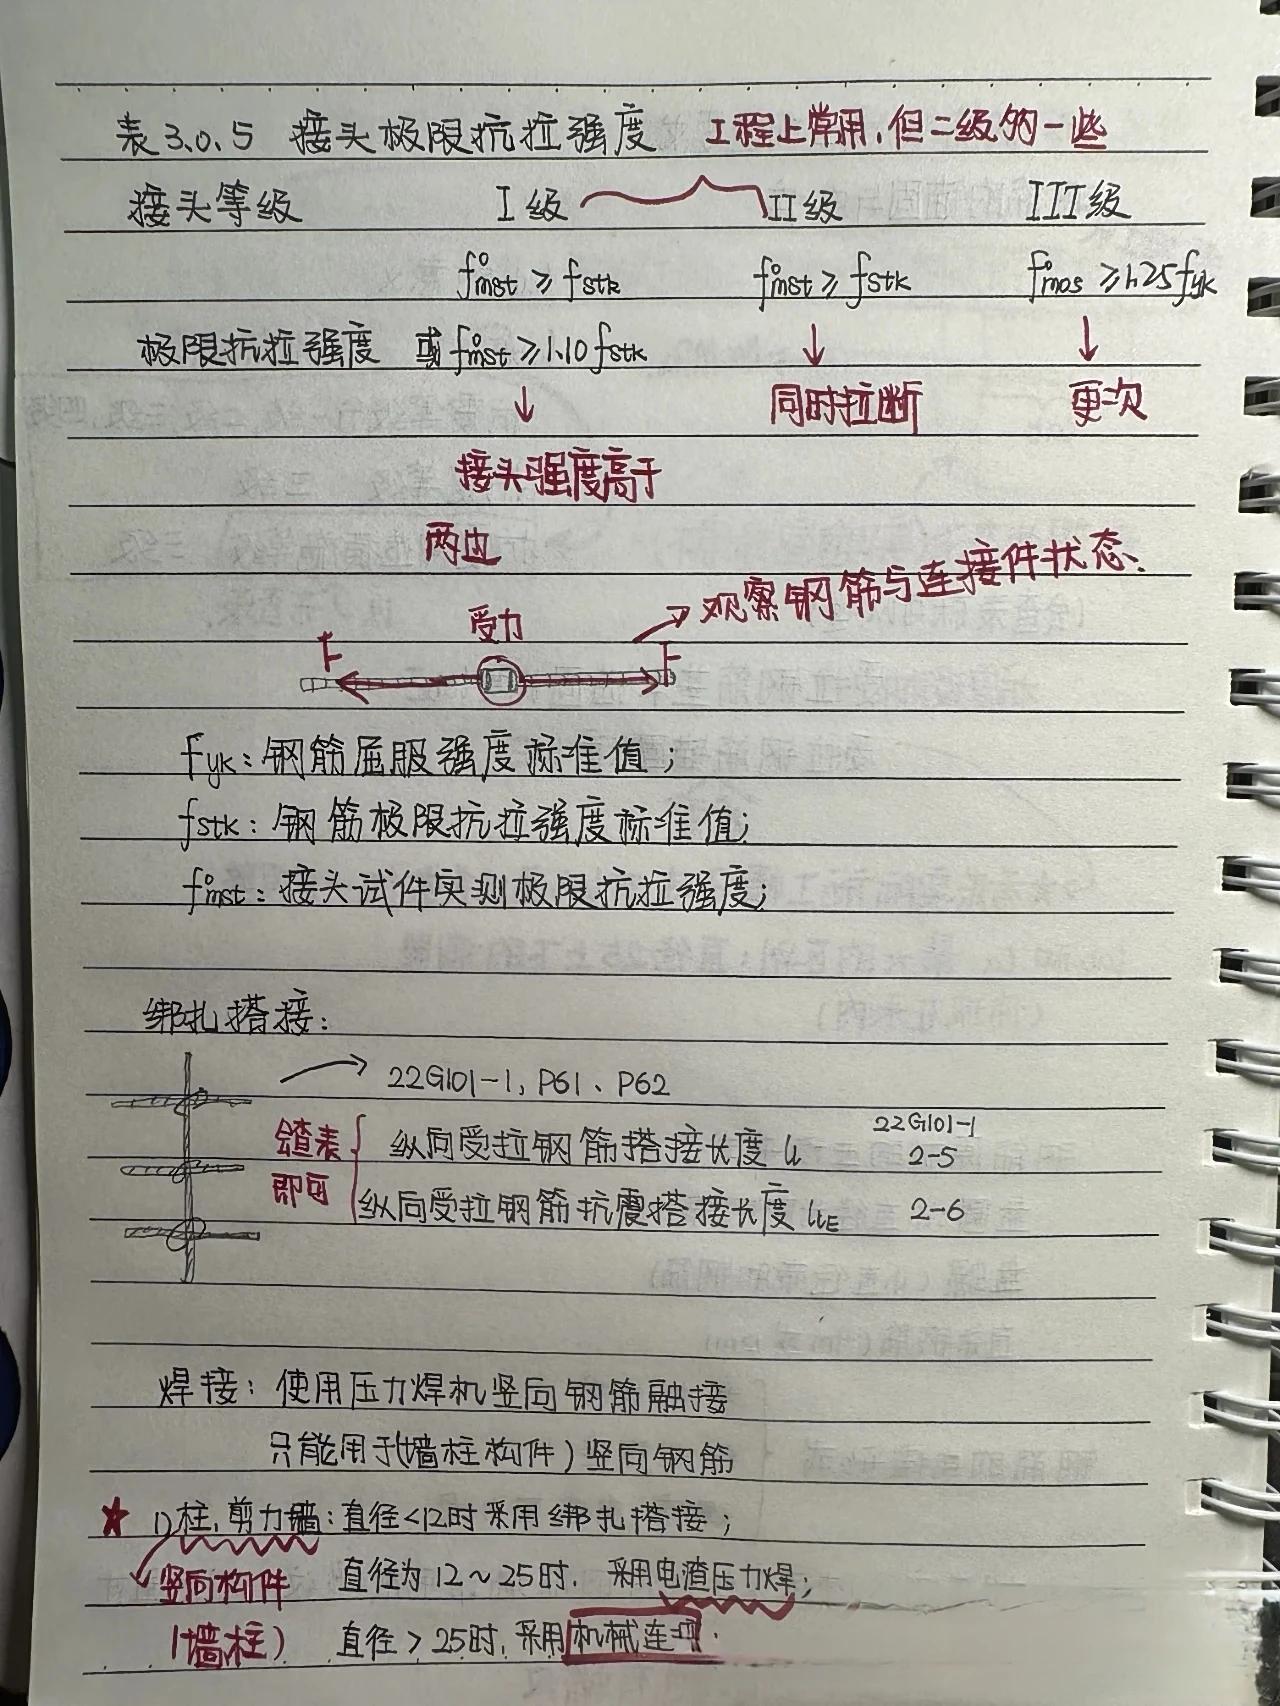 表3.0.5 接头极限抗拉强度 工程上常用,但二级的一些
接头等级 I级 II级 III级
f°mst ≥ fstk f°mst ≥ fstk f°mos ≥1.25fyk
极限抗拉强度 或f°mst ≥1.10fstk
同时拉断 更次
接头强度高于
两边
观察钢筋与连接件状态.
受力
F F
fyk:钢筋屈服强度标准值;
fstk:钢筋极限抗拉强度标准值;
f°mst:接头试件实测极限抗拉强度;
绑扎搭接:
22G101-1, P61、P62
会查表 纵向受拉钢筋搭接长度 ll 22G101-1 2-5
即可 纵向受拉钢筋抗震搭接长度 llE 2-6
焊接: 使用压力焊机竖向钢筋融接
只能用于(墙柱构件)竖向钢筋
★ 1)柱,剪力墙:直径<12时采用绑扎搭接;
竖向构件 直径为12~25时, 采用电渣压力焊;
(墙柱) 直径>25时,采用机械连